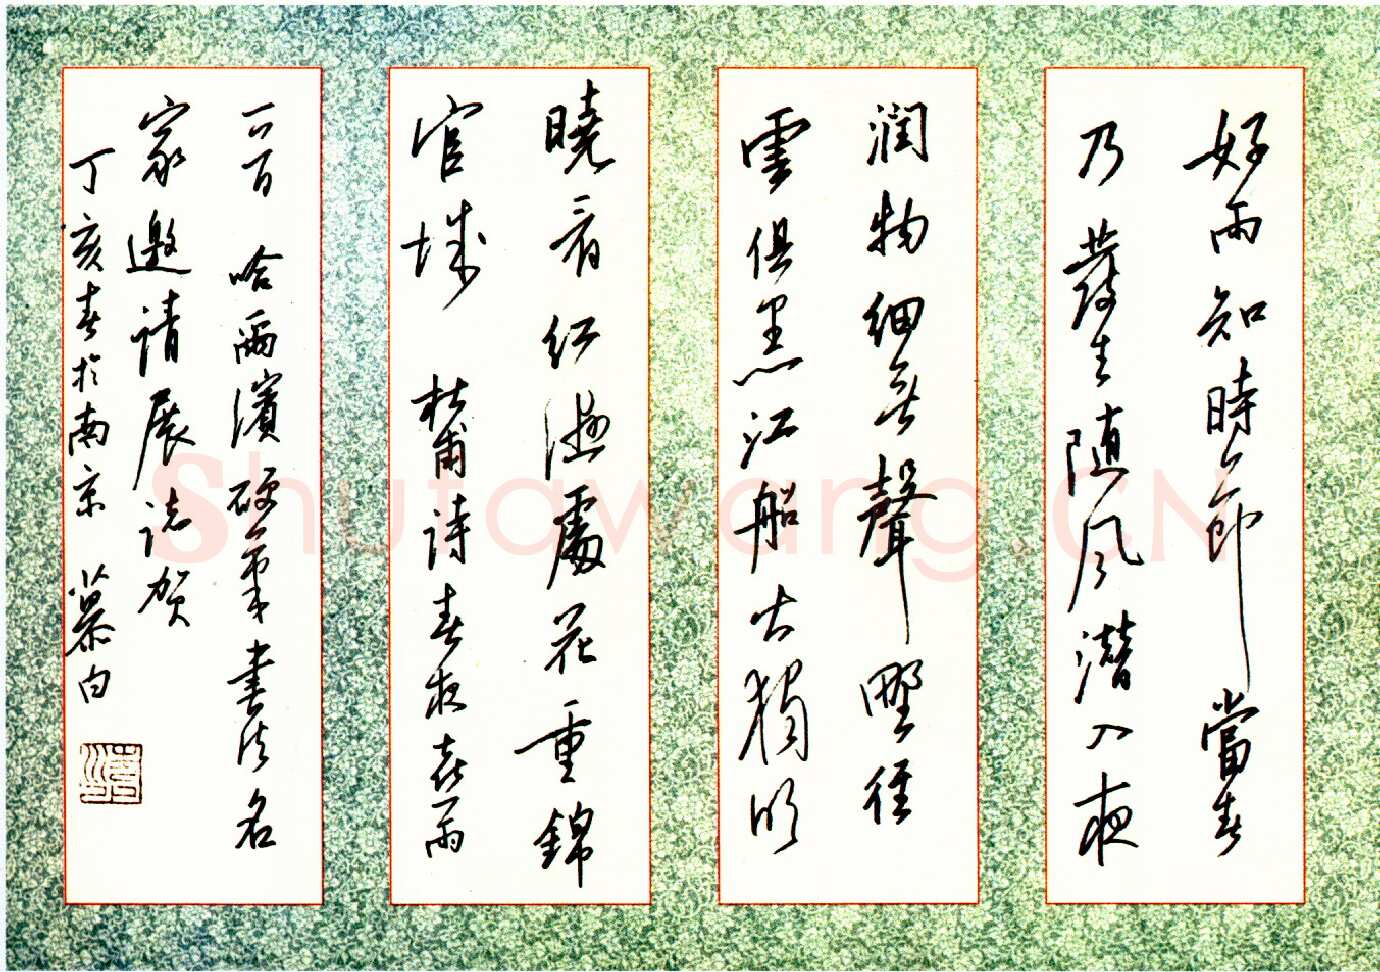 好雨知時節當春
乃發生随风潛入夜
润物细無聲野径
雲俱黑江船火獨明
曉看红濕處花重錦
官城 杜甫詩春夜喜雨
一百 哈爾濱硬笔書法名
家邀请展誌贺
丁亥春於南京 慕白
Shufawang.CN